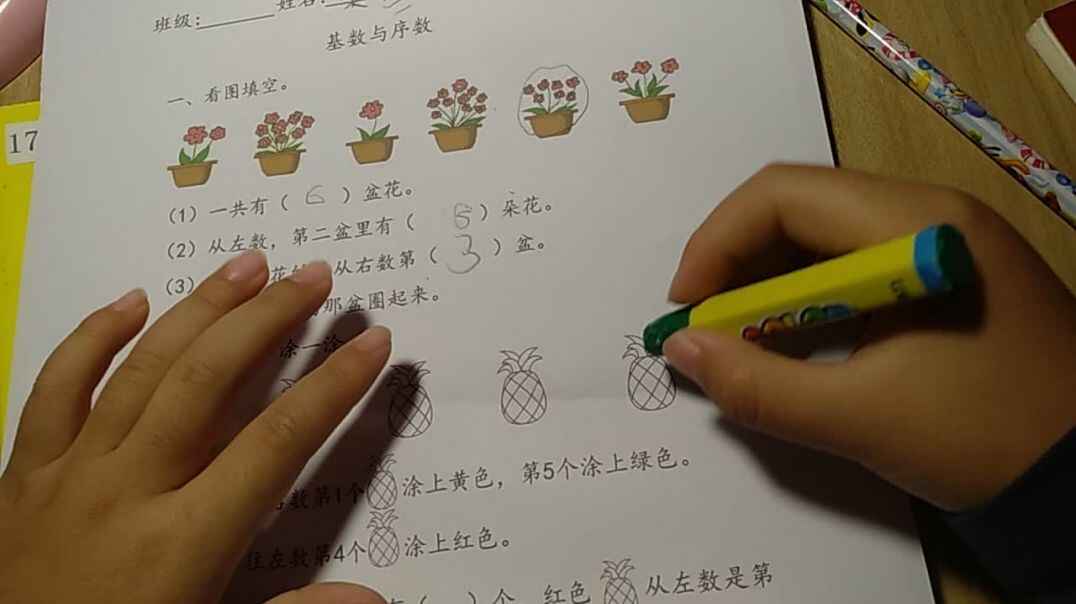 班级：
姓名：
基数与序数
17
一、看图填空。
（1）一共有（ 6 ）盆花。
（2）从左数，第二盆里有（ 6 ）朵花。
（3） 从右数第（ 3 ）盆。
那盆圈起来。
涂一涂
数第1个 涂上黄色，第5个涂上绿色。
往左数第4个 涂上红色。
（ ）个 红色 从左数是第